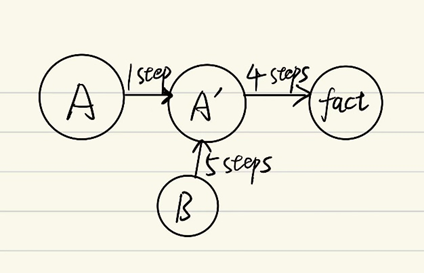 A
1 step
A'
4 steps
fact
5 steps
B